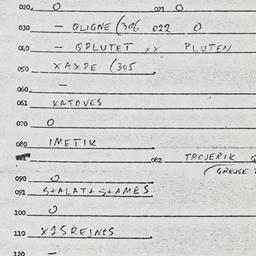 020. O 021 O
030 — QLIGNE (306 022 O
040 — QPLUTET ×× PLUTEN
050 XAXPE (305
060 —
061 KATOVES
070 O
080 IMETIK
082 TROJERIK
(GREJSE
090 O
091 S+ALAT+S+AMES
100 O
110 X1SREINES
120 —